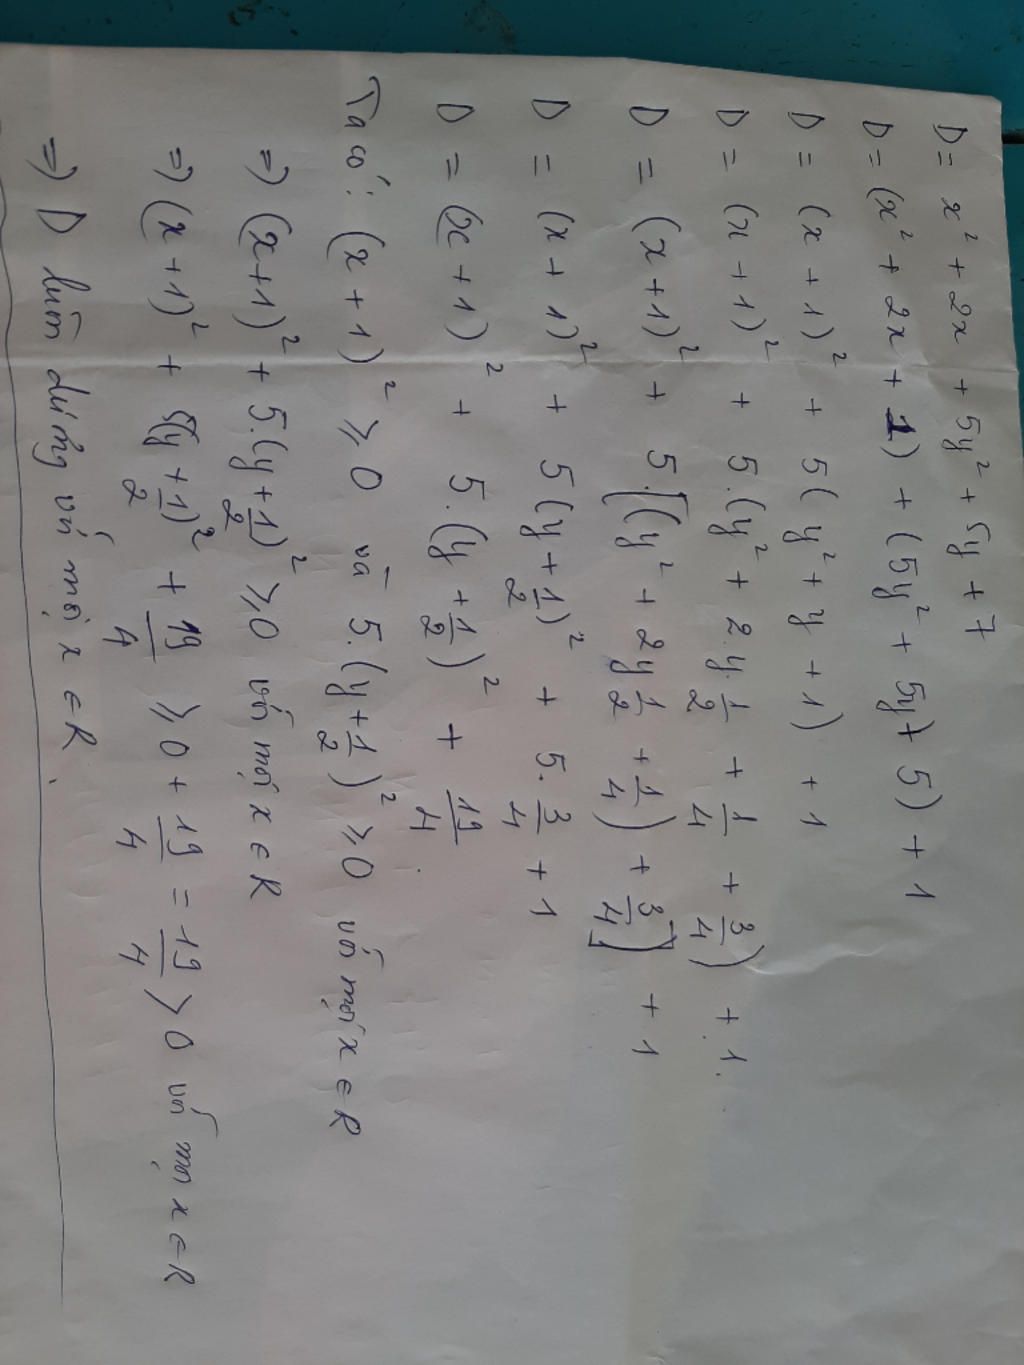 D = x² + 2x + 5y² + 5y + 7
D = (x² + 2x + 1) + (5y² + 5y + 5) + 1
D = (x + 1)² + 5(y² + y + 1) + 1
D = (x + 1)² + 5.(y² + 2.y.1/2 + 1/4 + 3/4) + 1.
D = (x + 1)² + 5.[(y² + 2y 1/2 + 1/4) + 3/4] + 1
D = (x + 1)² + 5(y + 1/2)² + 5.3/4 + 1
D = (x + 1)² + 5.(y + 1/2)² + 19/4.
Ta có: (x + 1)² ≥ 0 và 5.(y + 1/2)² ≥ 0 với mọi x ∈ R
⇒ (x+1)² + 5.(y + 1/2)² ≥ 0 với mọi x ∈ R
⇒ (x + 1)² + 5(y + 1/2)² + 19/4 ≥ 0 + 19/4 = 19/4 > 0 với mọi x ∈ R
⇒ D luôn dương với mọi x ∈ R.